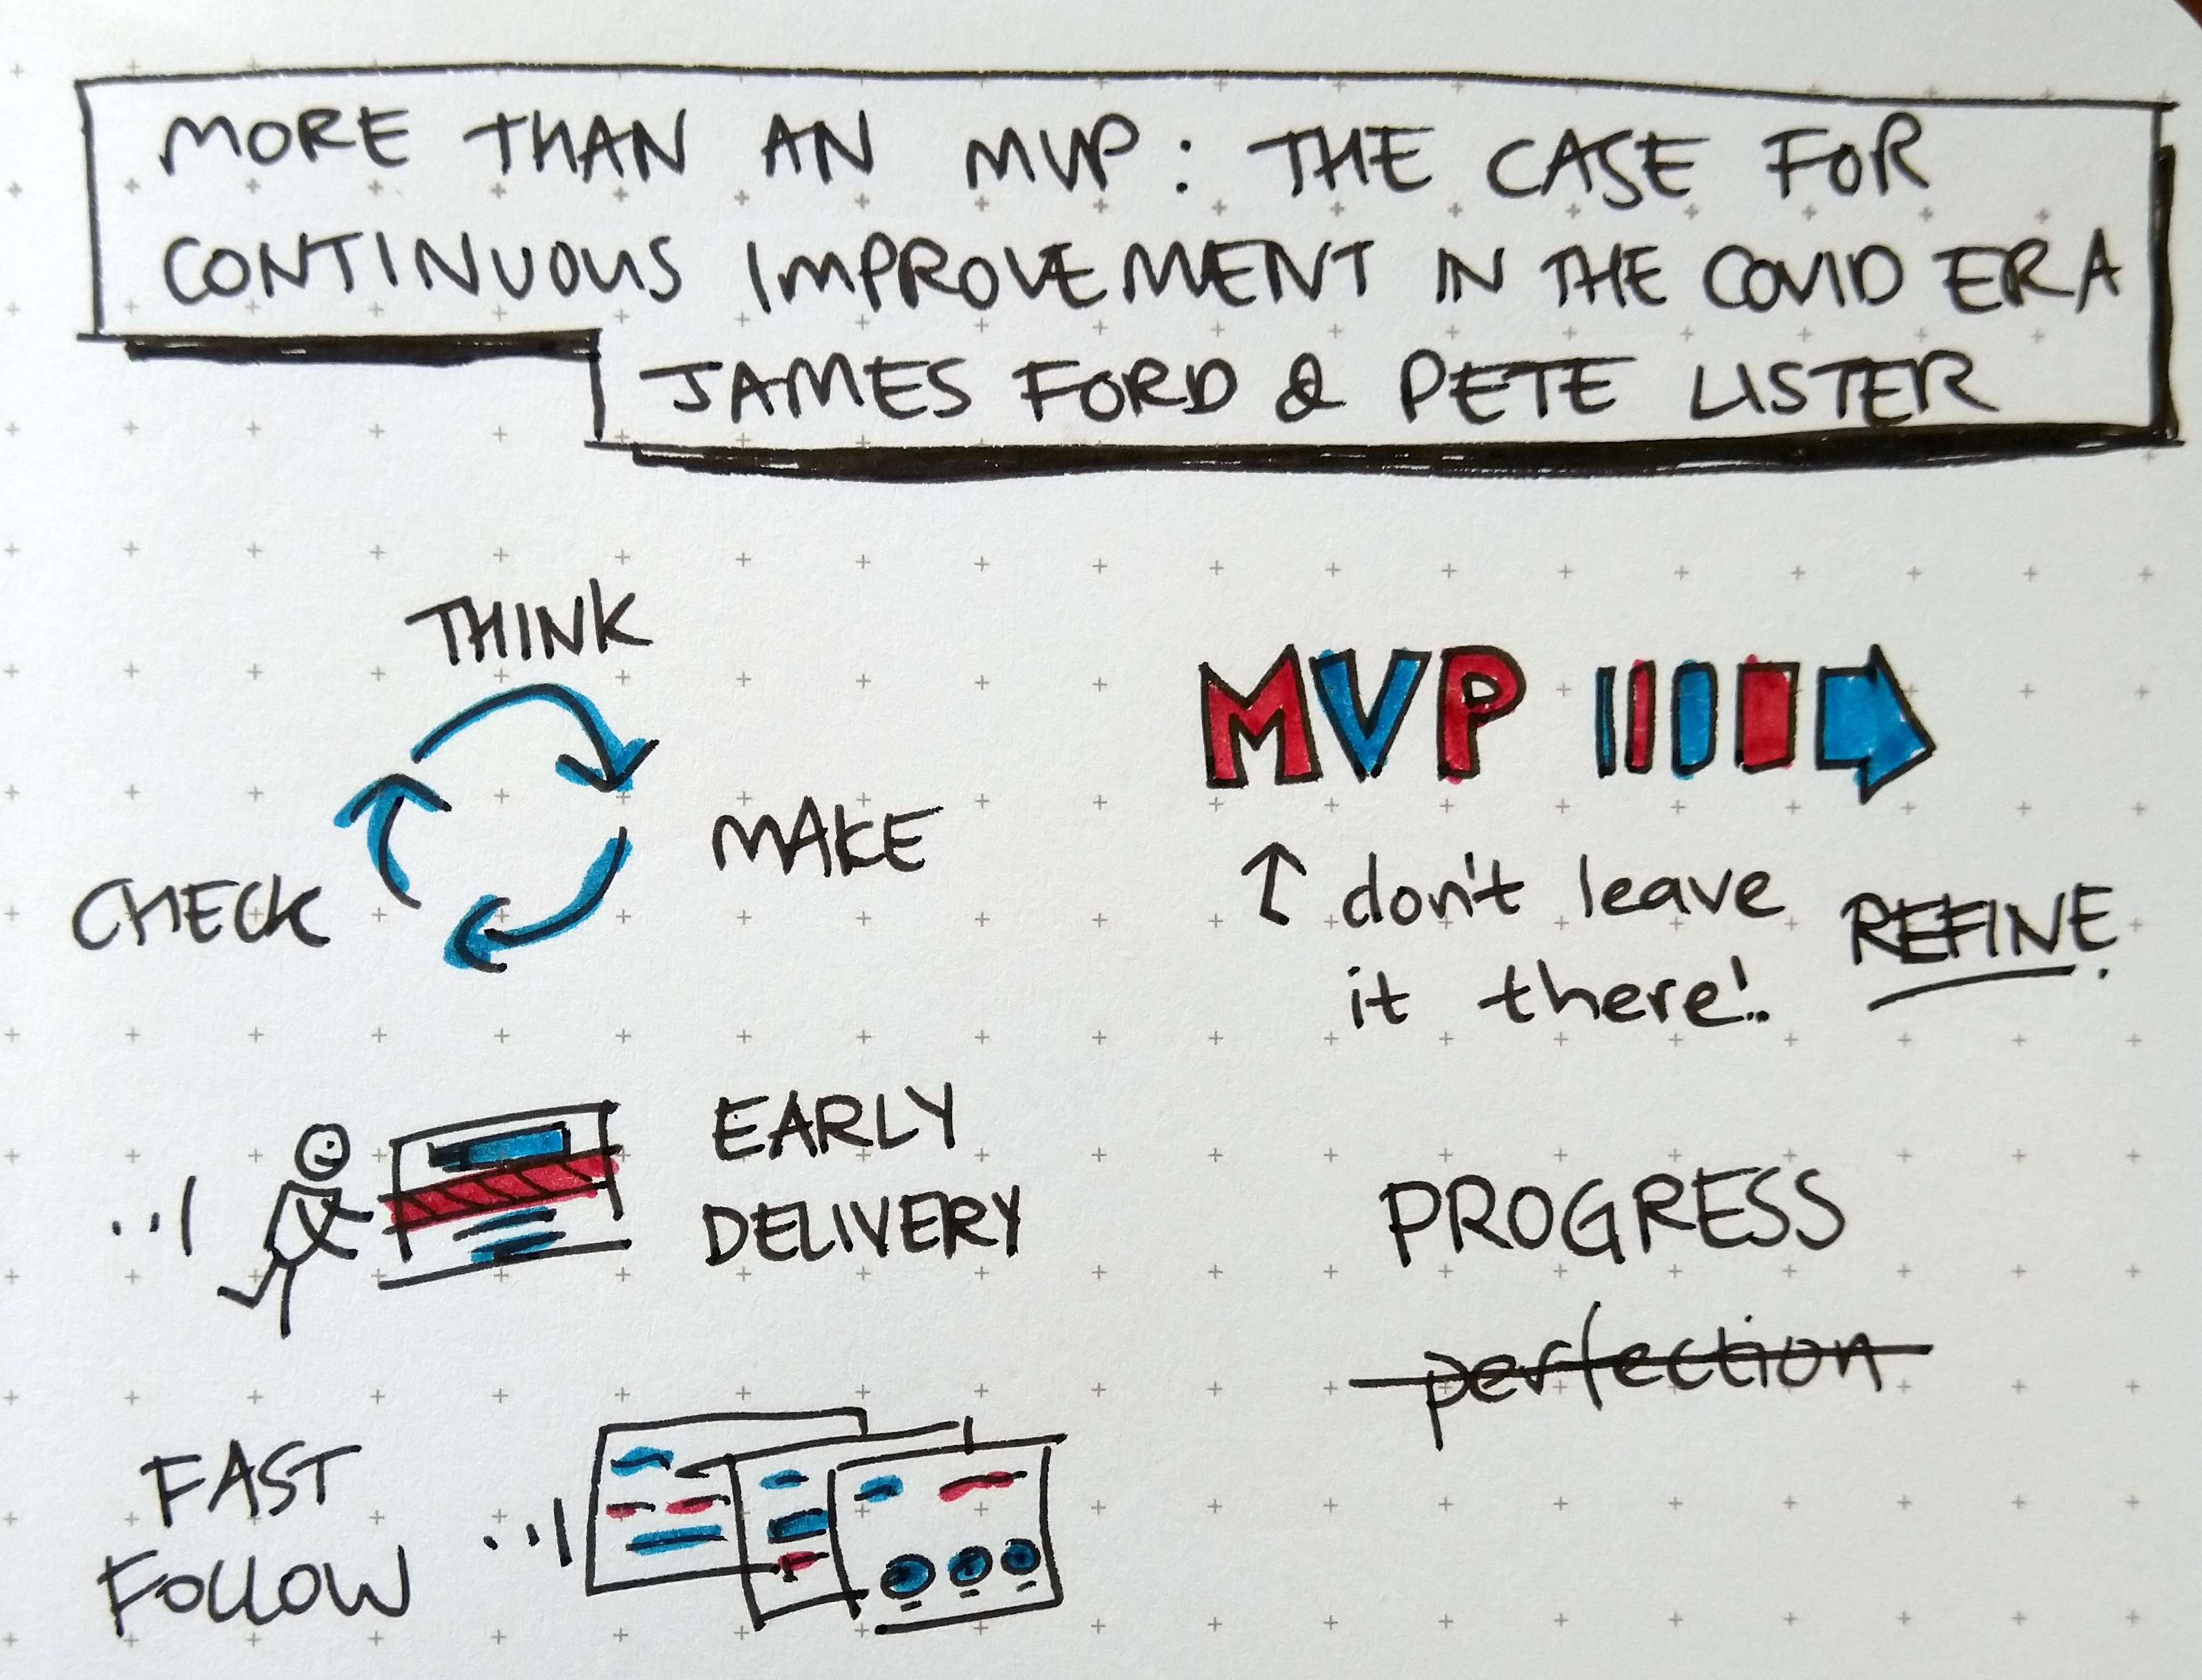 MORE THAN AN MVP: THE CASE FOR
CONTINUOUS IMPROVEMENT IN THE COVID ERA
JAMES FORD & PETE LISTER
THINK
MAKE
CHECK
MVP
↑ don't leave
it there!
REFINE.
EARLY
DELIVERY
PROGRESS
perfection
FAST
FOLLOW